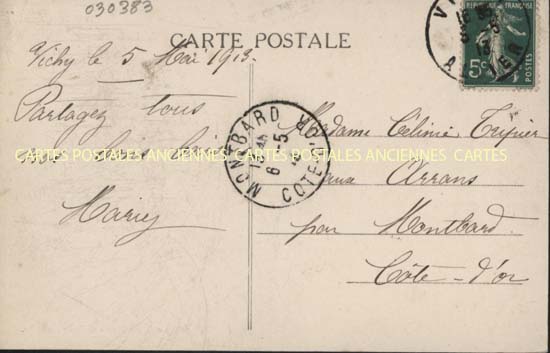 030383
CARTE POSTALE
Vichy le 5 Mai 1913.
Partagez tous
Marie
Madame Célinie Tripier
aux Arrans
par Montbard
Côte-d'or
MONTBARD
6 -5
COTE-D'OR
RÉPUBLIQUE FRANÇAISE
5c
POSTES
VI
ALLIER
CARTES POSTALES ANCIENNES CARTES POSTALES ANCIENNES CARTES